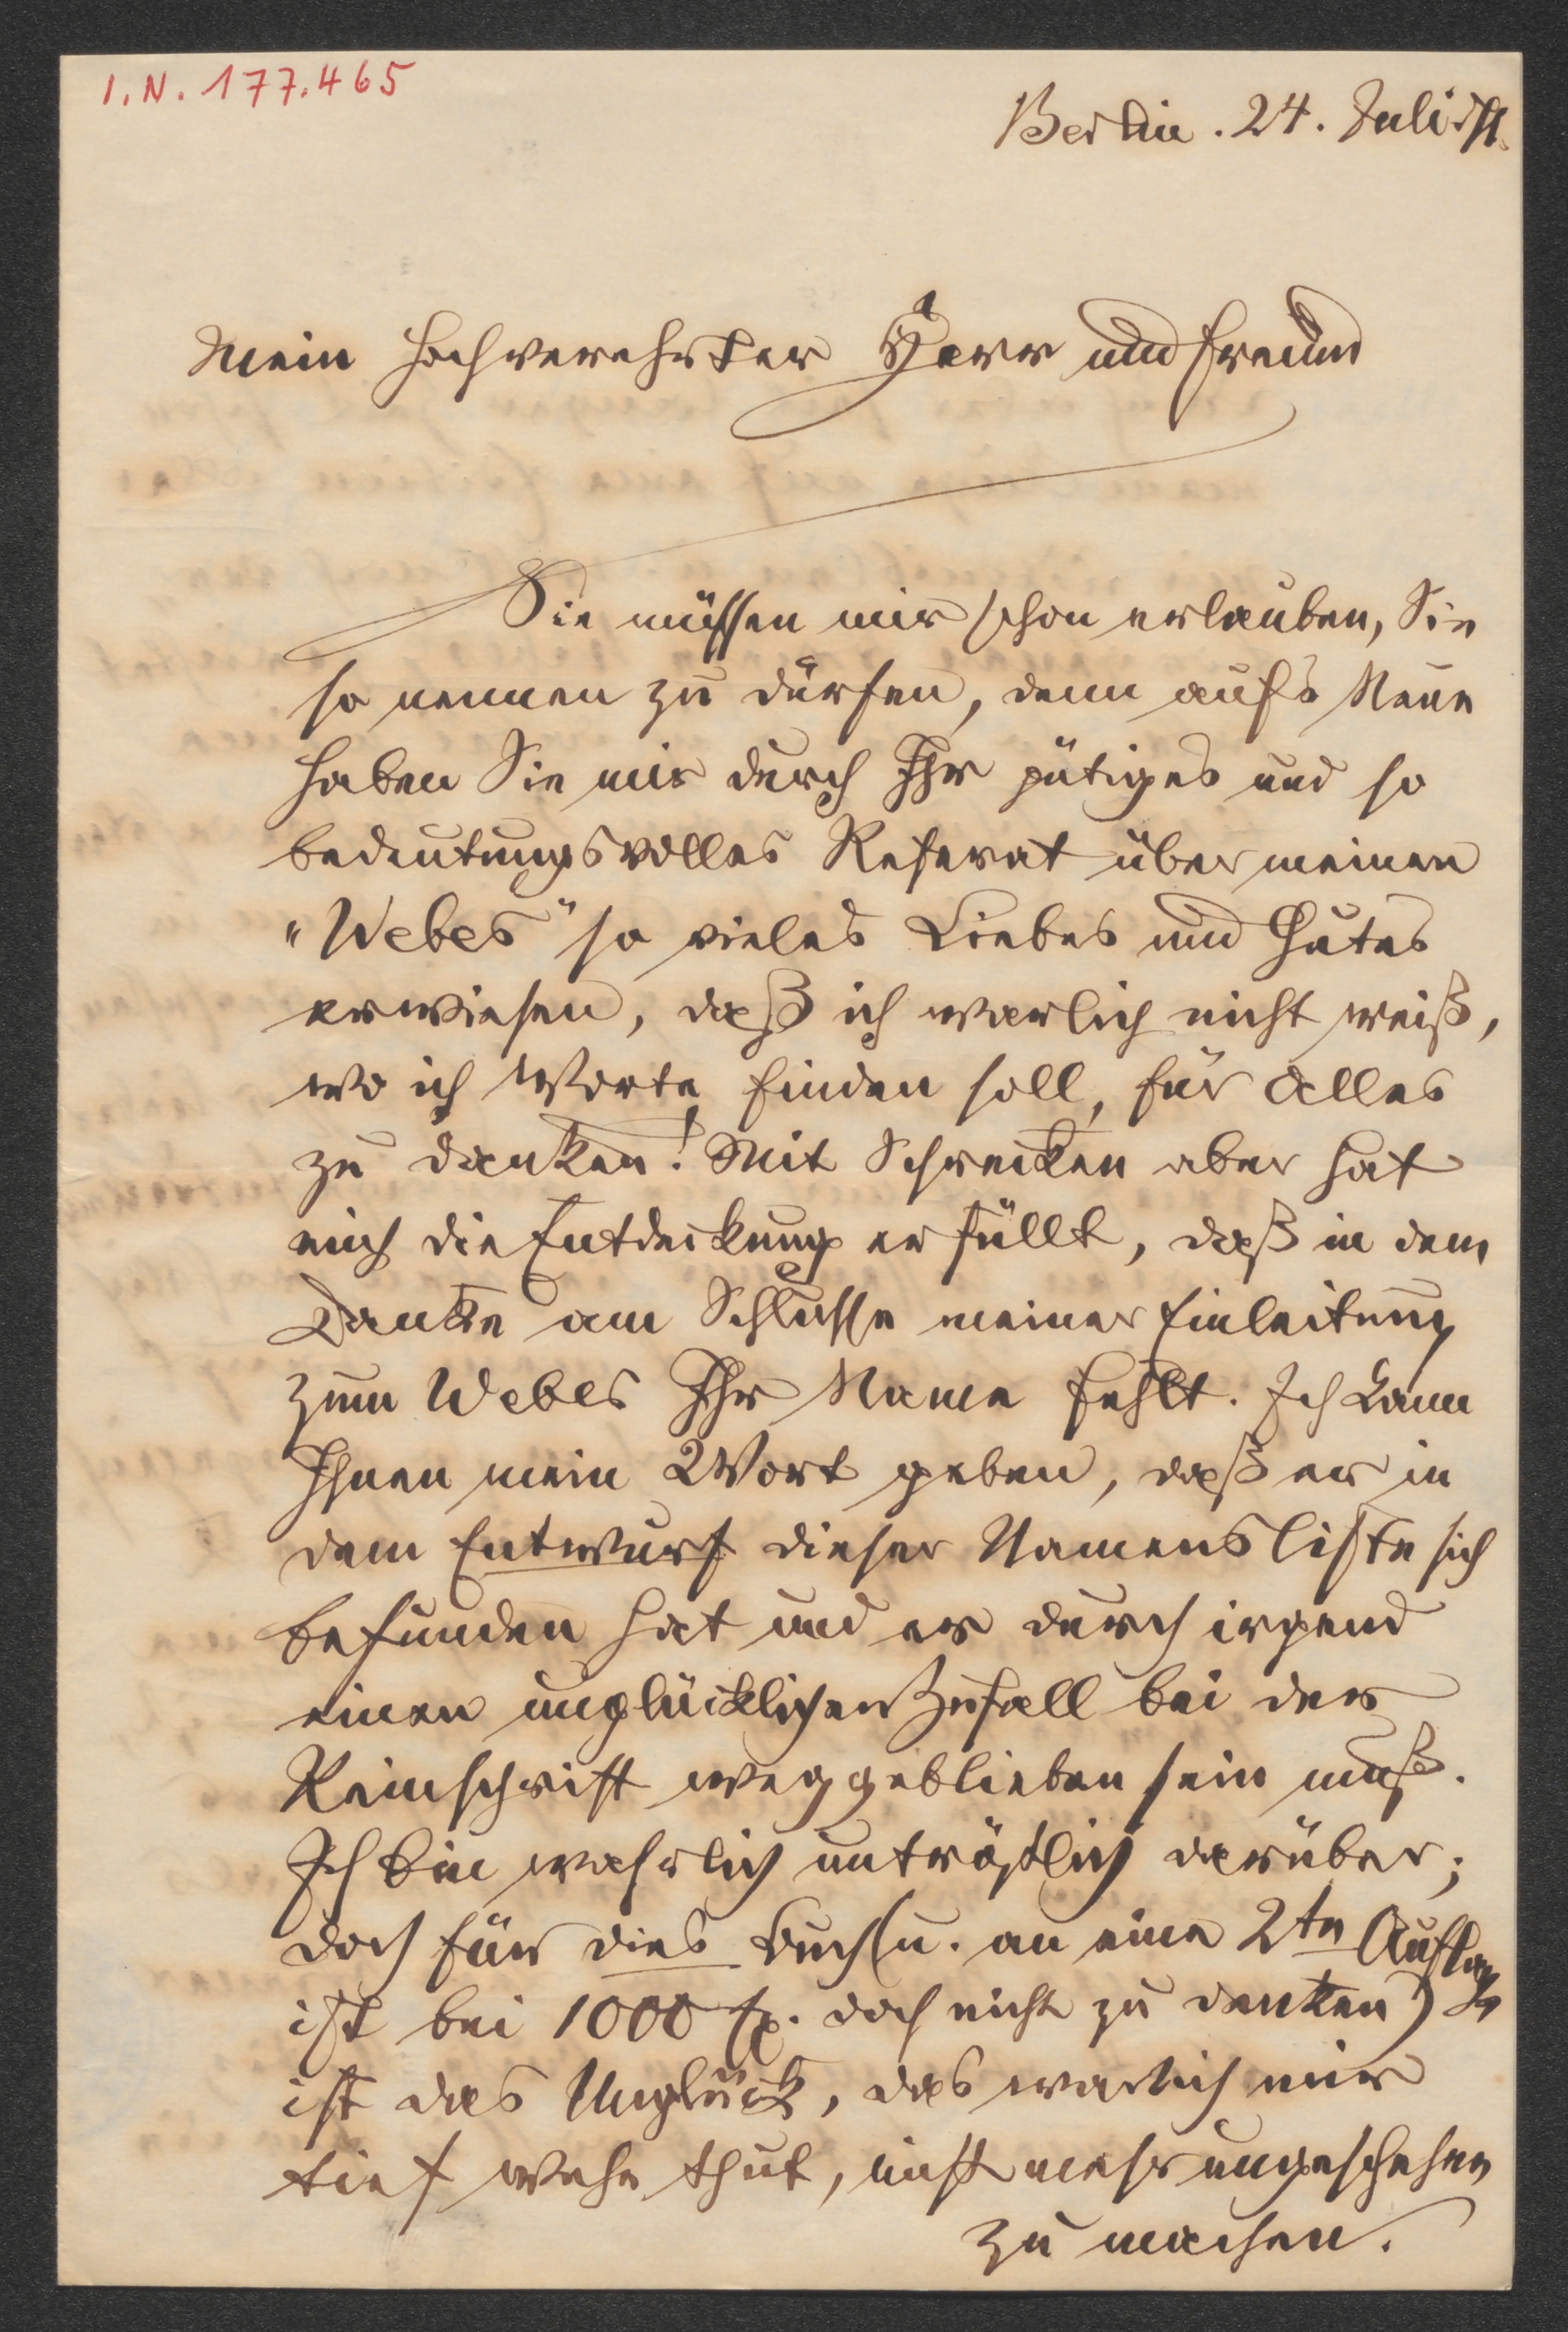 I.N. 177.465
Berlin. 24. Juli 71.
Mein hochverehrter Herr und Freund
Sie müssen mir schon erlauben, Sie
so nennen zu dürfen, denn auf's Neue
haben Sie mir durch Ihr gütiges und so
bedeutungsvolles Referat über meinen
„Weber" so vieles Liebes und Gutes
erwiesen, daß ich warlich nicht weiß,
wo ich Worte finden soll, für Alles
zu danken! Mit Schrecken aber hat
mich die Entdeckung erfüllt, daß in dem
Danke am Schlusse meiner Einleitung
zum Weber Ihr Name fehlt. Ich kann
Ihnen mein Wort geben, daß er in
dem Entwurf dieser Namensliste sich
befunden hat und er durch irgend
einen unglücklichen Zufall bei der
Reinschrift weggeblieben sein muß.
Ich bin wahrlich untröstlich darüber;
doch für dies Buch (u. an eine 2te Auflage
ist bei 1000 Ex. doch nicht zu denken)
ist das Unglück, das warlich mir
tief wehe thut, nicht mehr ungeschehen
zu machen.